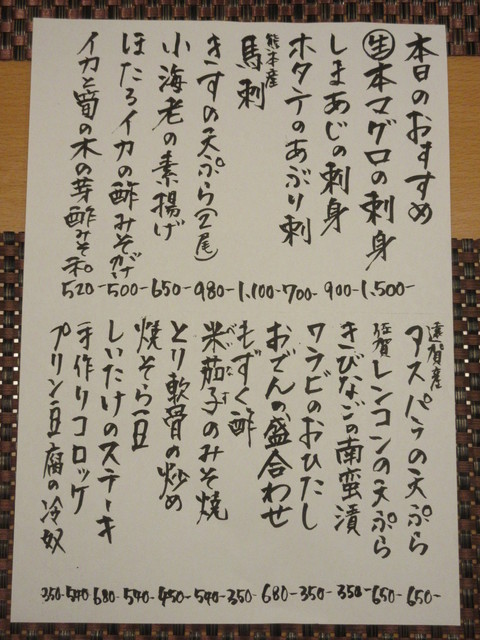 本日のおすすめ
生本マグロの刺身 1,500-
しまあじの刺身 900-
ホタテのあぶり刺 700-
熊本産 馬刺 1,100-
きすの天ぷら(2尾) 980-
小海老の素揚げ 650-
ほたるイカの酢みそがけ 500-
イカと筍の木の芽酢みそ和 520-
遠賀産 アスパラの天ぷら 650-
佐賀 レンコンの天ぷら 650-
きびなごの南蛮漬 350-
ワラビのおひたし 350-
おでんの盛合わせ 680-
もずく酢 350-
米茄子のみそ焼 540-
とり軟骨の炒め 450-
焼そら豆 540-
しいたけのステーキ 680-
手作りコロッケ 540-
プリン豆腐の冷奴 350-